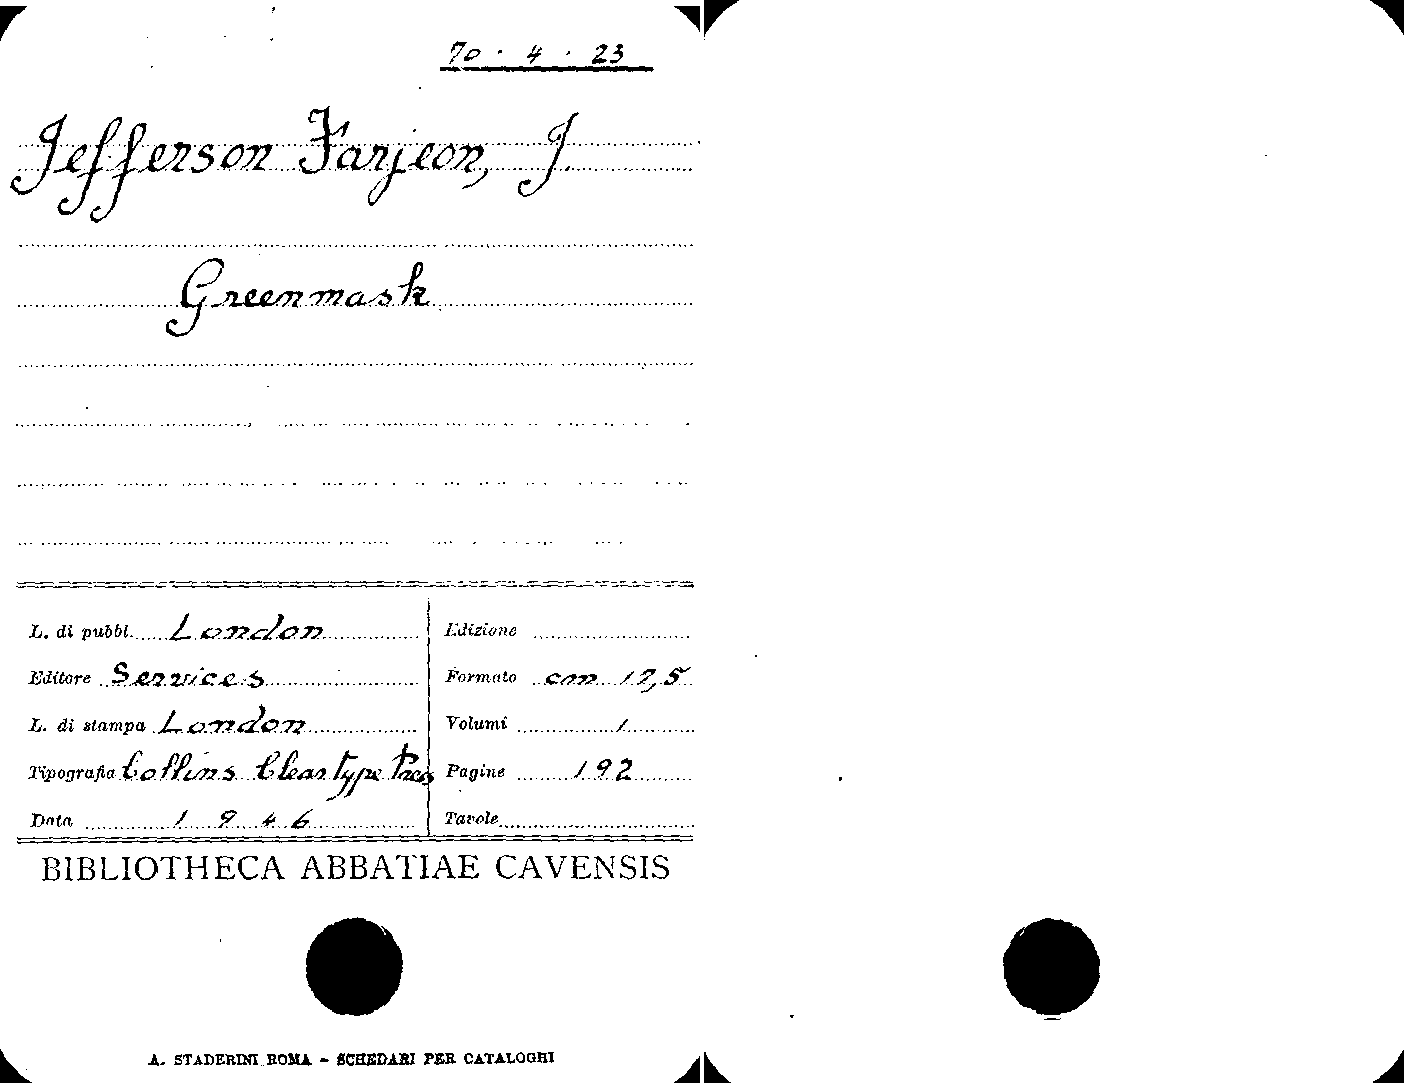 70 · 4 · 23
Jefferson Farjeon, J.
Greenmask
L. di pubbl. London
Editore Services
L. di stampa London
Tipografia Collins Clear type Press
Data 1946
Edizione
Formato cm 17,5
Volumi 1
Pagine 192
Tavole
BIBLIOTHECA ABBATIAE CAVENSIS
A. STADERINI ROMA - SCHEDARI PER CATALOGHI